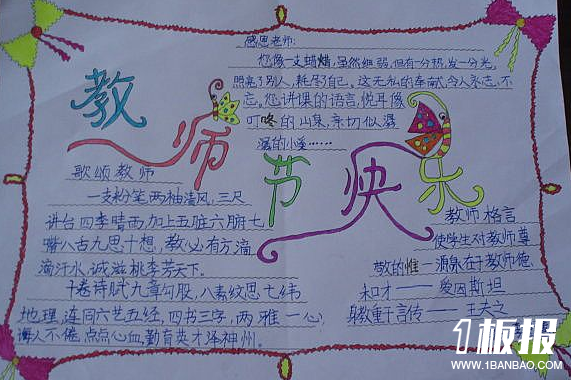 感恩老师:
您像一支蜡烛,虽然细弱,但有一分热,发一分光,
照亮了别人,耗尽了自己。这无私的奉献,令人永志不
忘。您讲课的语言,悦耳像
叮咚的山泉,亲切似潺
潺的小溪……
教师节快乐
歌颂教师
一支粉笔两袖清风,三尺
讲台四季晴雨,加上五脏六腑七
嘴八舌九思十想,教必有方,滴
滴汗水,诚滋桃李芳天下。
十卷诗赋九章勾股,八索纹思七纬
地理,连同六艺五经,四书三字,两雅一心,
诲人不倦,点点心血,勤育英才泽神州。
教师格言
使学生对教师尊
敬的惟一源泉在于教师德
和才——爱因斯坦
身教重于言传——王夫之
1板报
WWW.1BANBAO.COM